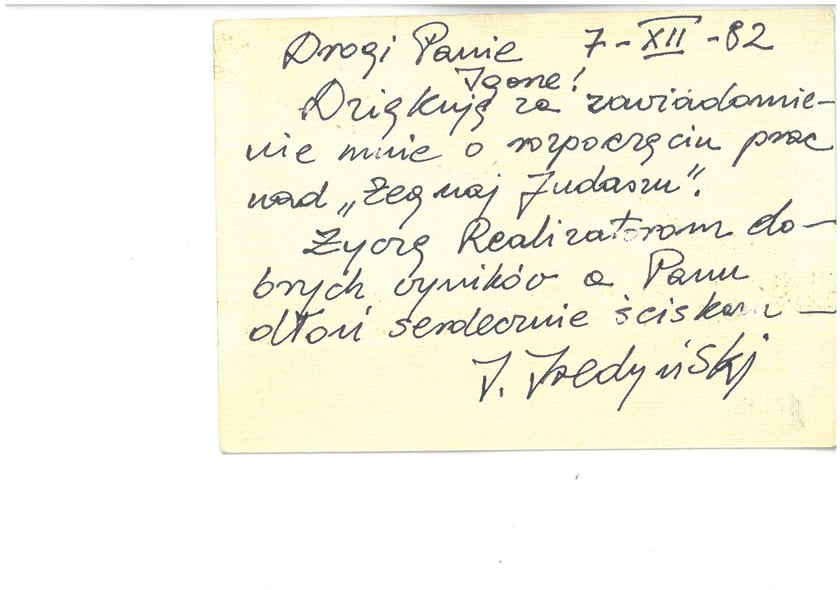 Drogi Panie 7-XII-82
Igorze!
Dziękuję za zawiadomie-
nie mnie o rozpoczęciu prac
nad „Żegnaj Judaszu”.
Życzę Realizatorom do-
brych wyników a Panu
dłoń serdecznie ściskam —
I. Iredyński